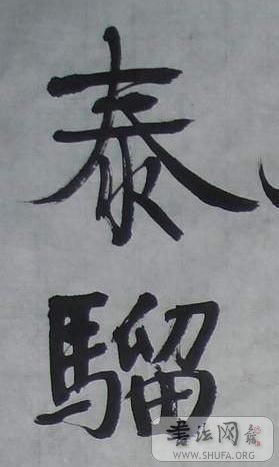 泰
騮
書法网
WWW.SHUFA.ORG